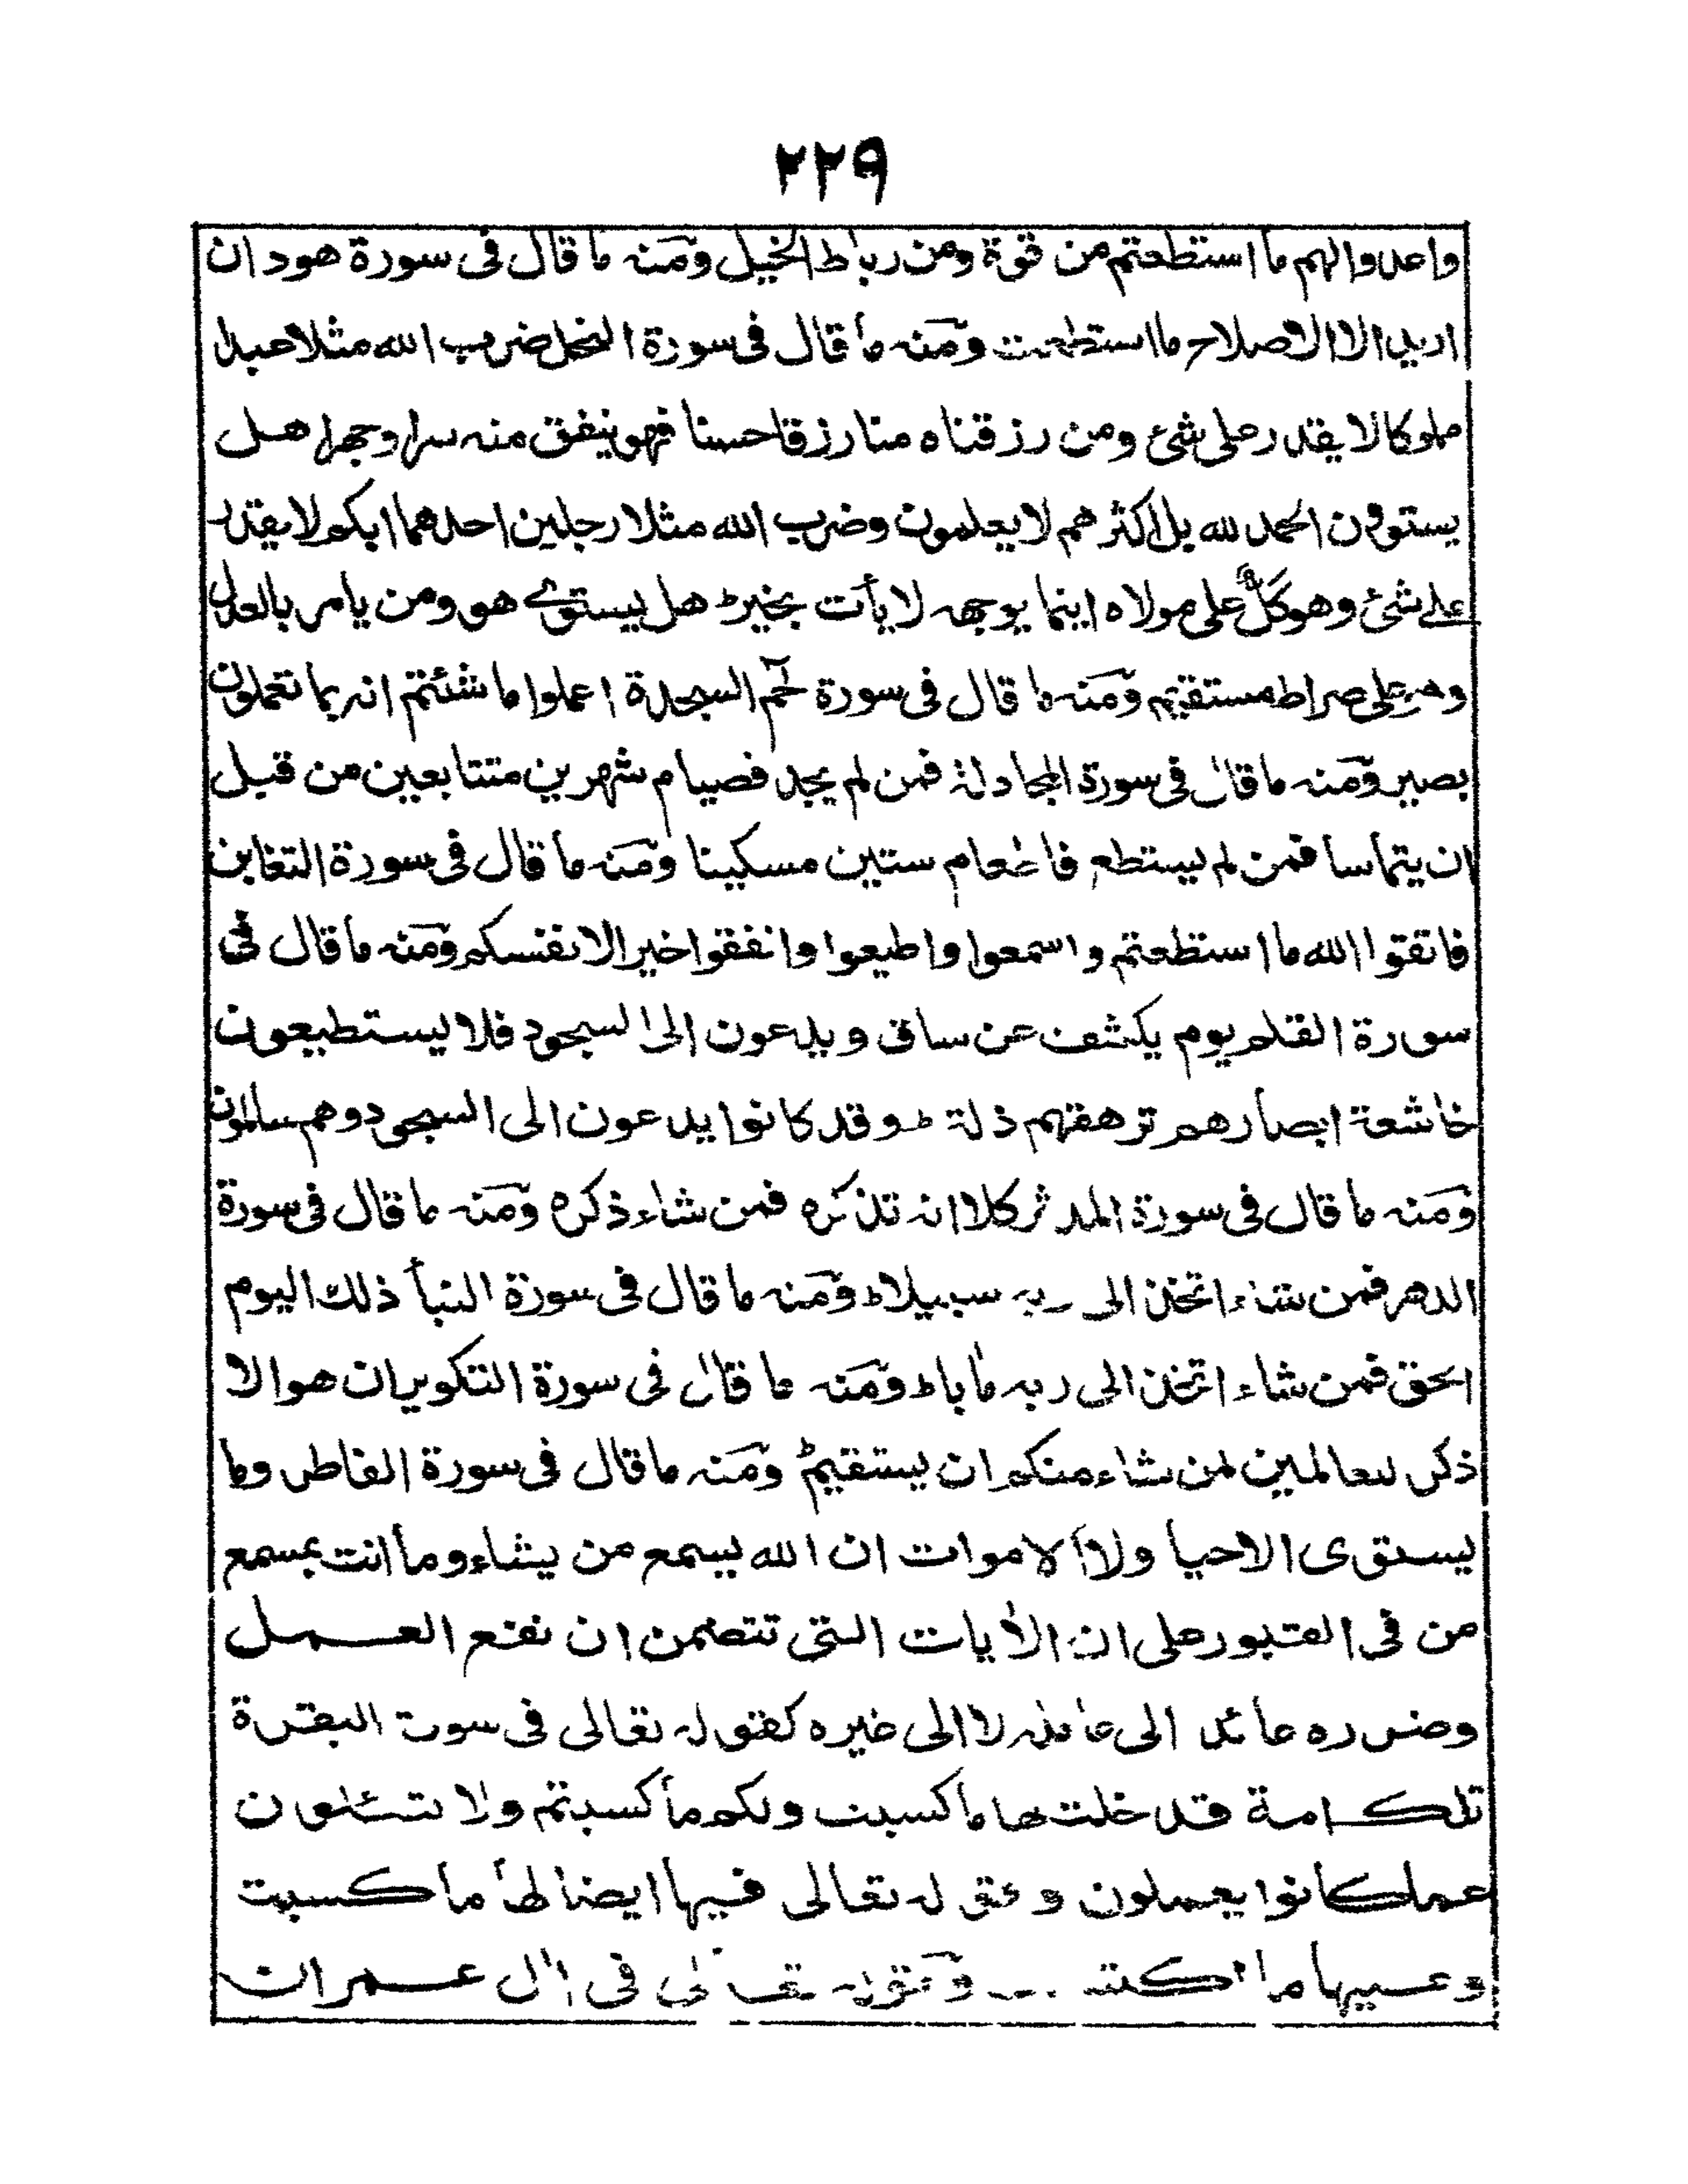 ٢٢٩
واعدوا لهم ما استطعتم من قوة ومن رباط الخيل ومنه ما قال فى سورة هود ان
اريد الا الاصلاح ما استطعت ومنه ما قال فى سورة النحل ضرب الله مثلا عبدا
مملوكا لا يقدر على شئ ومن رزقناه منا رزقا حسنا فهو ينفق منه سرا وجهرا هل
يستوون الحمد لله بل اكثرهم لا يعلمون وضرب الله مثلا رجلين احدهما ابكم لا يقدر
علے شئ وهو كلٌّ على مولاه اينما يوجهه لا يأت بخير ط هل يستوے هو ومن يامر بالعدل
وهو على صراط مستقيم ومنه ما قال فى سورة حٓم السجدة اعملوا ما شئتم انه بما تعملون
بصير ومنه ما قال فى سورة المجادلة فمن لم يجد فصيام شهرين متتابعين من قبل
ان يتماسا فمن لم يستطع فاطعام ستين مسكينا ومنه ما قال فى سورة التغابن
فاتقوا الله ما استطعتم واسمعوا واطيعوا وانفقوا خيرا لانفسكم ومنه ما قال فى
سورة القلم يوم يكشف عن ساق ويدعون الى السجود فلا يستطيعون
خاشعة ابصارهم ترهقهم ذلة ط وقد كانوا يدعون الى السجود وهم سالمون
ومنه ما قال فى سورة المدثر كلا انه تذكره فمن شاء ذكره ومنه ما قال فى سورة
الدهر فمن شاء اتخذ الى ربه سبيلا ط ومنه ما قال فى سورة النبأ ذلك اليوم
الحق فمن شاء اتخذ الى ربه مابا ط ومنه ما قال فى سورة التكوير ان هو الا
ذكر للعالمين لمن شاء منكم ان يستقيم ط ومنه ما قال فى سورة الفاطر وما
يستوى الاحيا ولا الاموات ان الله يسمع من يشاء وما انت بمسمع
من فى القبور على ان الايات التى تتضمن ان نفع العمل
وضرره عائد الى عامله لا الى غيره كقوله تعالى فى سورت البقرة
تلك امة قد خلت لها ما كسبت ولكم ما كسبتم ولا تسئلون
عما كانوا يعملون وقوله تعالى فيها ايضا لها ما كسبت
وعليها ما اكتسبت وقوله تعالى فى ال عمران